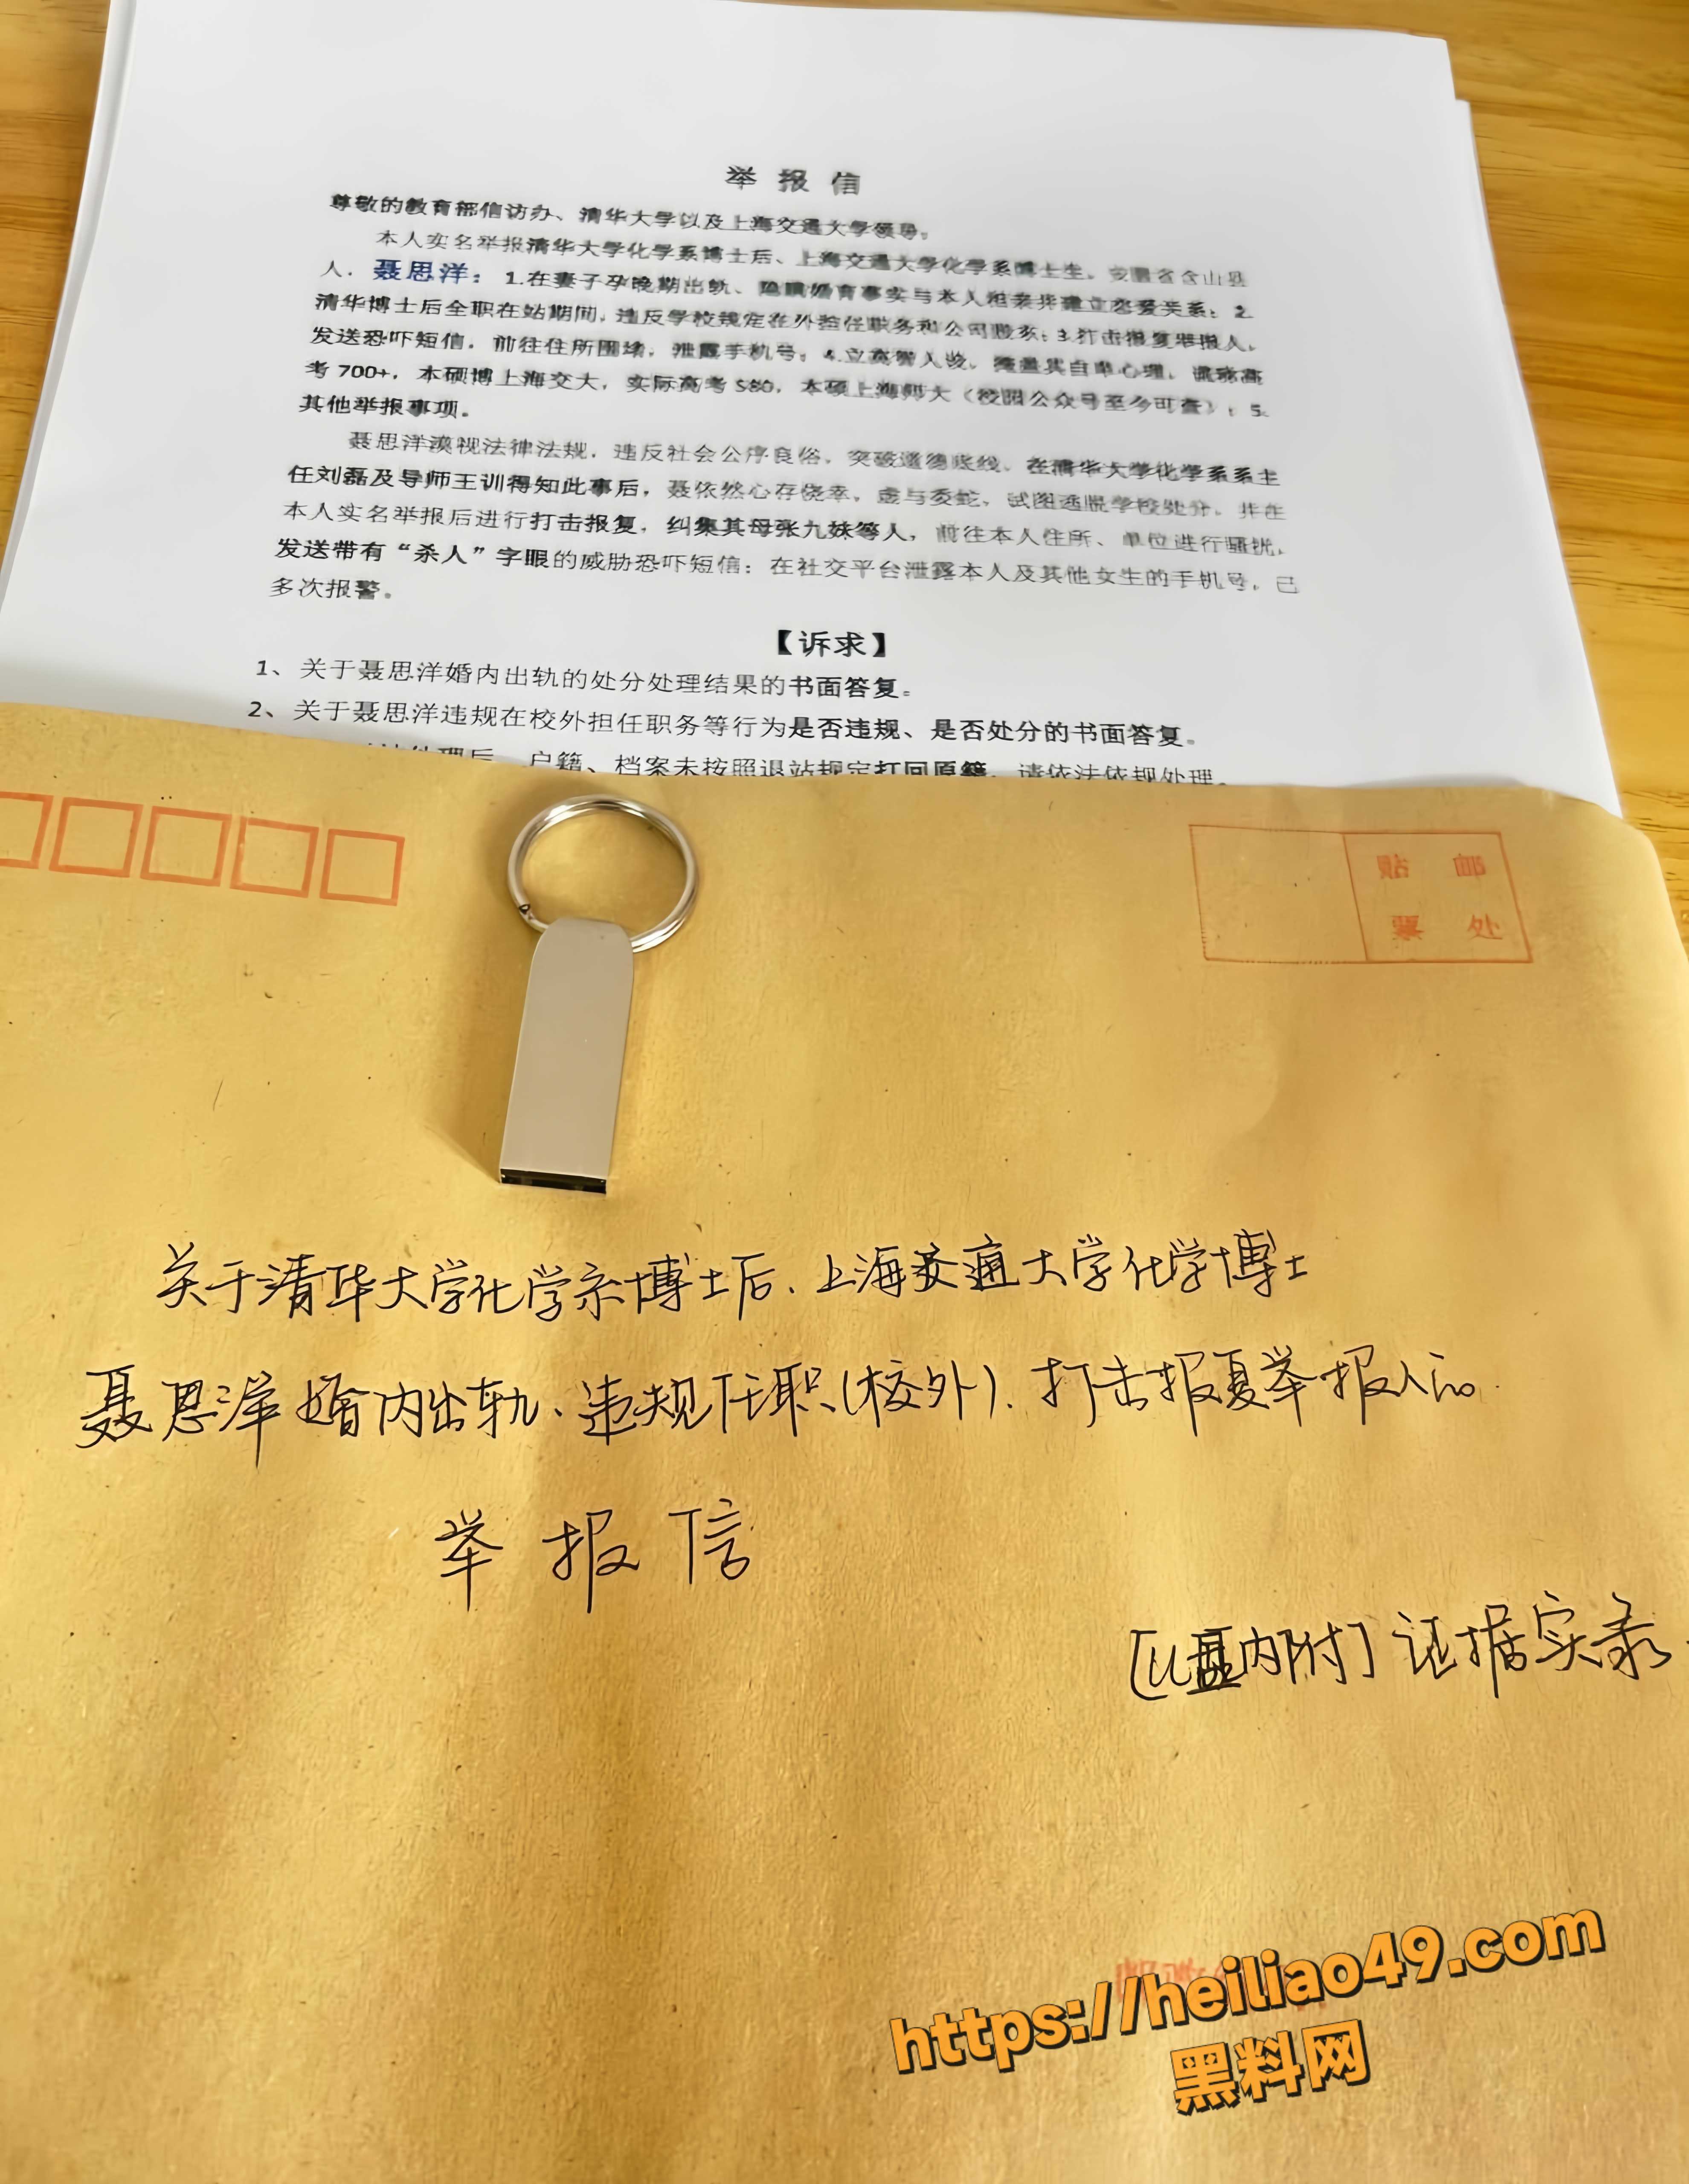 举报信
尊敬的教育部信访办、清华大学以及上海交通大学领导。
本人实名举报清华大学化学系博士后、上海交通大学化学系博士生，安徽省含山县
人，聂思洋：1.在妻子孕晚期出轨、隐瞒婚育事实与本人相亲并建立恋爱关系；2.
清华博士后全职在站期间，违反学校规定在外担任职务和公司股东；3.打击报复举报人，
发送恐吓短信，前往住所围堵，泄露手机号；4.立高智人设，掩盖其自卑心理，谎称高
考 700+，本硕博上海交大，实际高考 580，本硕上海师大（校园公众号至今可查）；5.
其他举报事项。
聂思洋漠视法律法规，违反社会公序良俗，突破道德底线，在清华大学化学系系主
任刘磊及导师王训得知此事后，聂依然心存侥幸，虚与委蛇，试图逃脱学校处分，并在
本人实名举报后进行打击报复，纠集其母张九妹等人，前往本人住所、单位进行骚扰，
发送带有“杀人”字眼的威胁恐吓短信；在社交平台泄露本人及其他女生的手机号，已
多次报警。
【诉求】
1、关于聂思洋婚内出轨的处分处理结果的书面答复。
2、关于聂思洋违规在校外担任职务等行为是否违规、是否处分的书面答复。
处理后，户籍、档案未按照退站规定打回原籍，请依法依规处理。
贴 邮
票 处
关于清华大学化学系博士后、上海交通大学化学博士
聂思洋婚内出轨、违规任职(校外)、打击报复举报人的
举报信
[U盘内附] 证据实录
https://heiliao49.com
黑料网